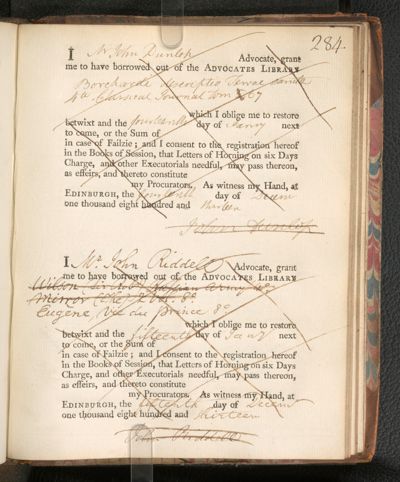 284.
I Mr John Dunlop Advocate, grant
me to have borrowed out of the ADVOCATES LIBRARY
Borchardi descriptio Terrae
4to Classical Journal
which I oblige me to restore
betwixt and the fourteenth day of Janry next
to come, or the Sum of
in case of Failzie; and I consent to the registration hereof
in the Books of Session, that Letters of Horning on six Days
Charge, and other Executorials needful, may pass thereon,
as effeirs, and thereto constitute
my Procurators. As witness my Hand, at
EDINBURGH, the fourteenth day of Decem
one thousand eight hundred and thirteen
John Dunlop
I Mr John Riddell Advocate, grant
me to have borrowed out of the ADVOCATES LIBRARY
Wilson Army 4o
Mirror (The) 2 vol. 8o
Eugene, Vie du prince 8o
which I oblige me to restore
betwixt and the fifteenth day of Jany next
to come, or the Sum of
in case of Failzie; and I consent to the registration hereof
in the Books of Session, that Letters of Horning on six Days
Charge, and other Executorials needful, may pass thereon,
as effeirs, and thereto constitute
my Procurators. As witness my Hand, at
EDINBURGH, the fifteenth day of Decem
one thousand eight hundred and thirteen
John Riddell